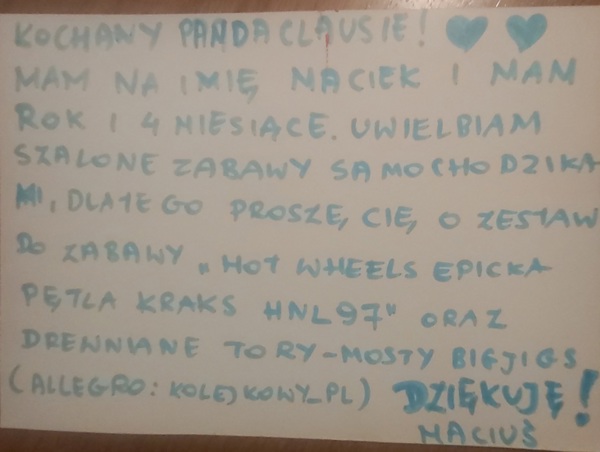 KOCHANY PANDACLAUSIE!
MAM NA IMIĘ MACIEK I MAM
ROK I 4 MIESIĄCE. UWIELBIAM
SZALONE ZABAWY SAMOCHODZIKA
MI, DLATEGO PROSZĘ CIĘ O ZESTAW
DO ZABAWY „HOT WHEELS EPICKA
PĘTLA KRAKS HNL97" ORAZ
DREWNIANE TORY-MOSTY BIGJIGS
(ALLEGRO: KOLEJKOWY_PL) DZIĘKUJĘ!
MACIUŚ